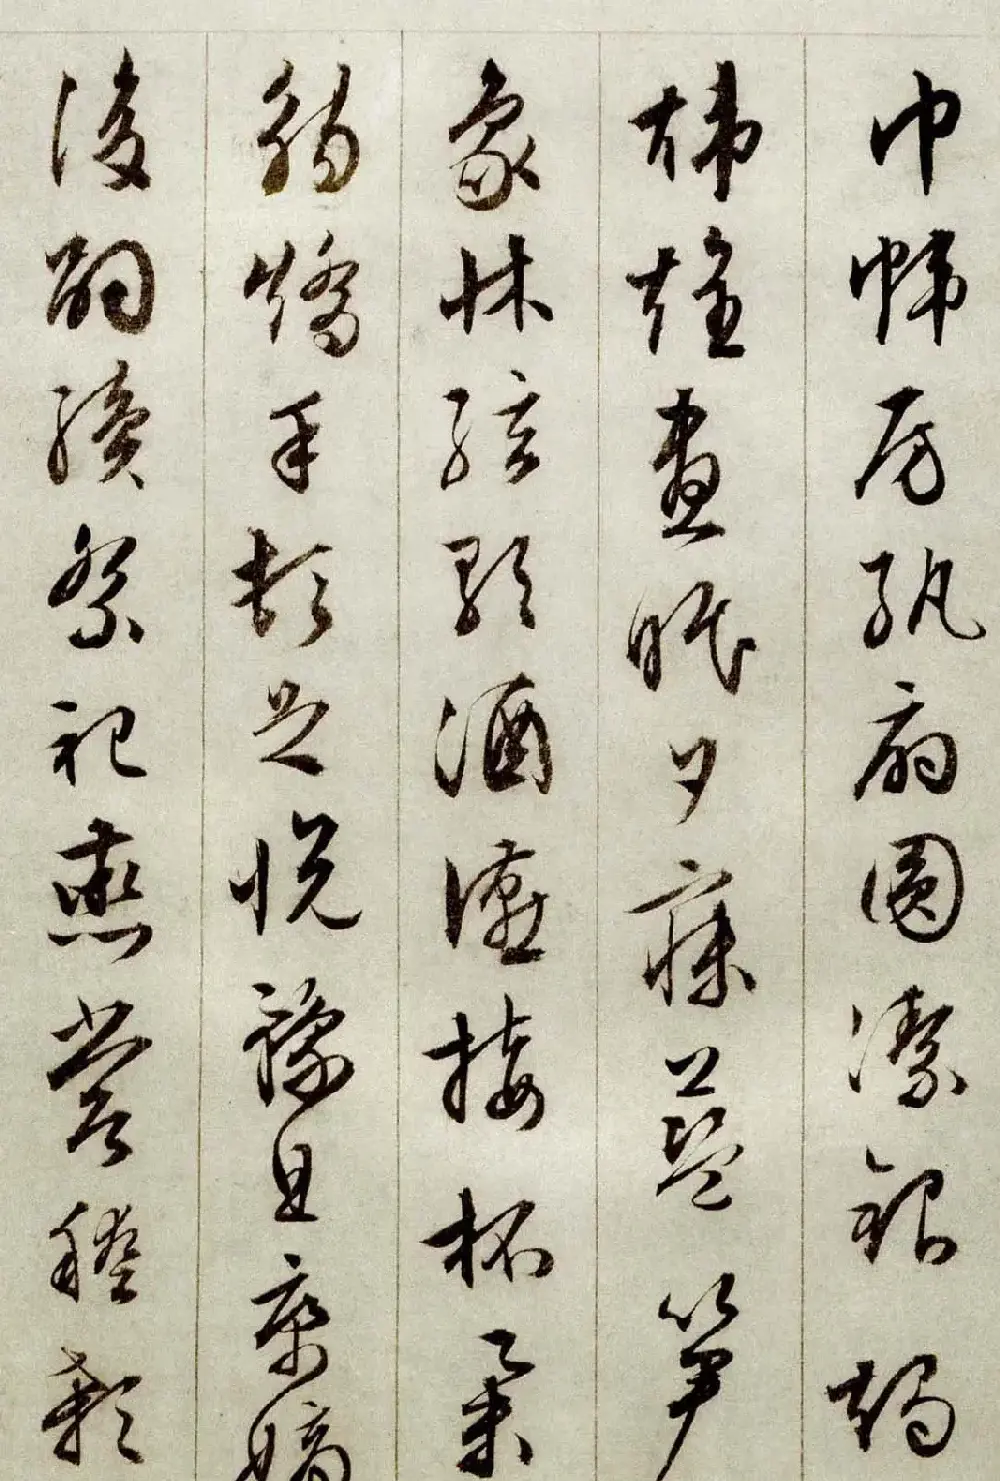 巾帷房紈扇圓潔銀燭
煒煌晝眠夕寐藍笋
象牀絃歌酒讌接杯舉
觴矯手頓足悅豫且康嫡
後嗣續祭祀烝嘗稽顙